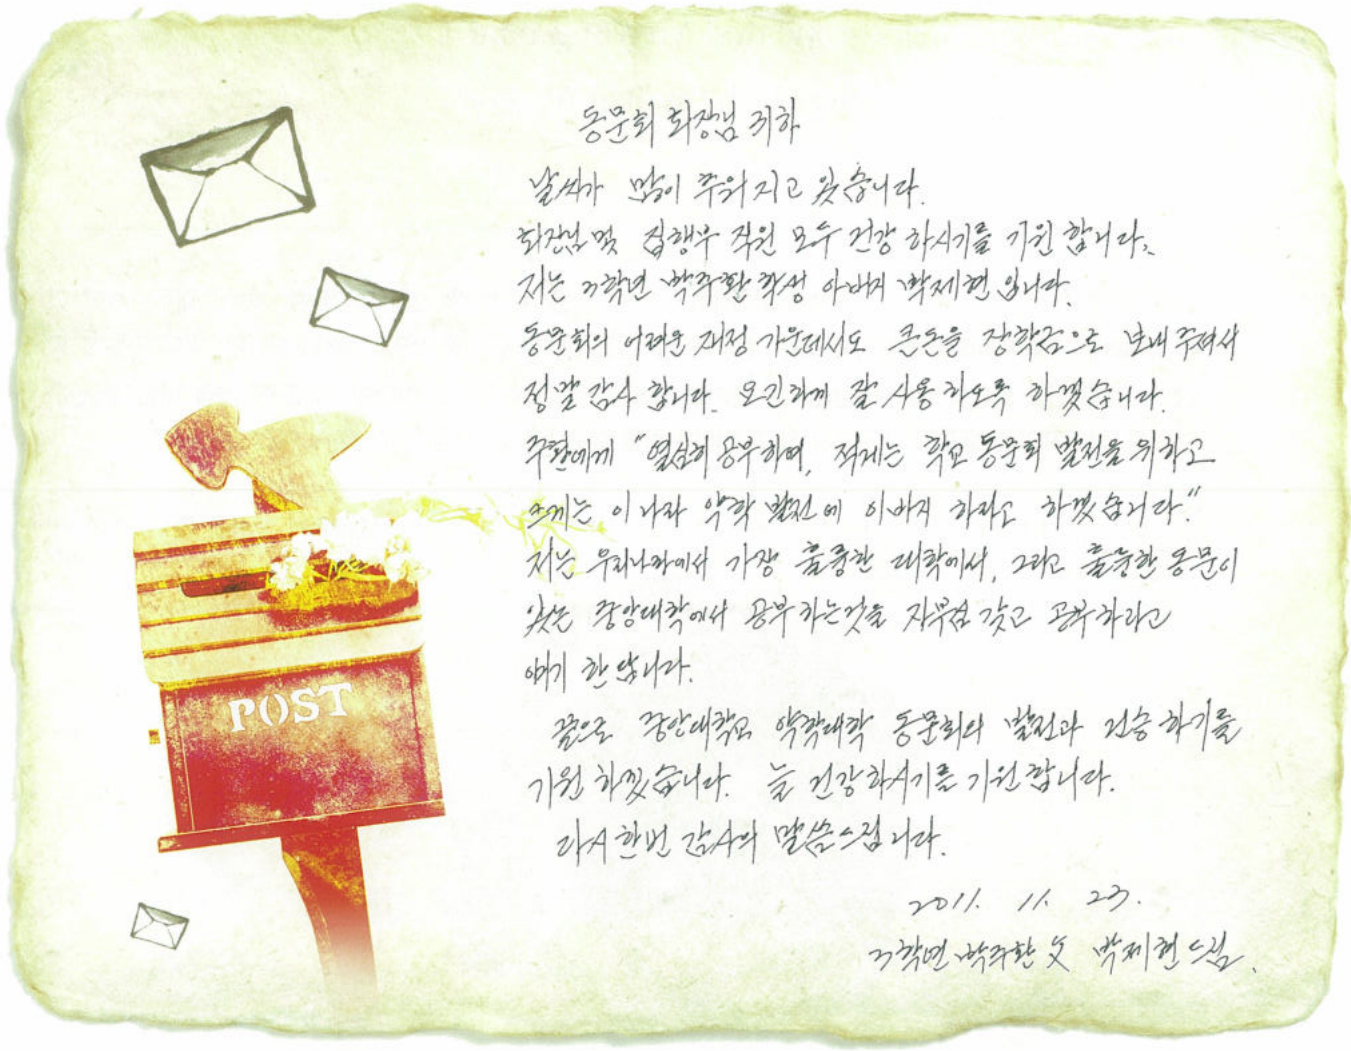 동문회 회장님 귀하
날씨가 많이 추워지고 있습니다.
회장님 및 집행부 직원 모두 건강 하시기를 기원 합니다.
저는 3학년 박주환 학생 아버지 박제현 입니다.
동문회의 어려운 재정 가운데서도 큰돈을 장학금으로 보내 주셔서
정말 감사 합니다. 요긴하게 잘 사용 하도록 하겠습니다.
주환에게 "열심히 공부하여, 적게는 학교 동문회 발전을 위하고
크게는 이 나라 약학 발전에 이바지 하라고 하겠습니다."
저는 우리나라에서 가장 훌륭한 대학에서, 그리고 훌륭한 동문이
있는 중앙대학에서 공부 하는것을 자부심 갖고 공부하라고
얘기 한답니다.
POST
끝으로 중앙대학교 약학대학 동문회의 발전과 건승 하기를
기원 하겠습니다. 늘 건강하시기를 기원 합니다.
다시 한번 감사의 말씀 드립니다.
2011. 11. 23.
3학년 박주환 父 박제현 드림.